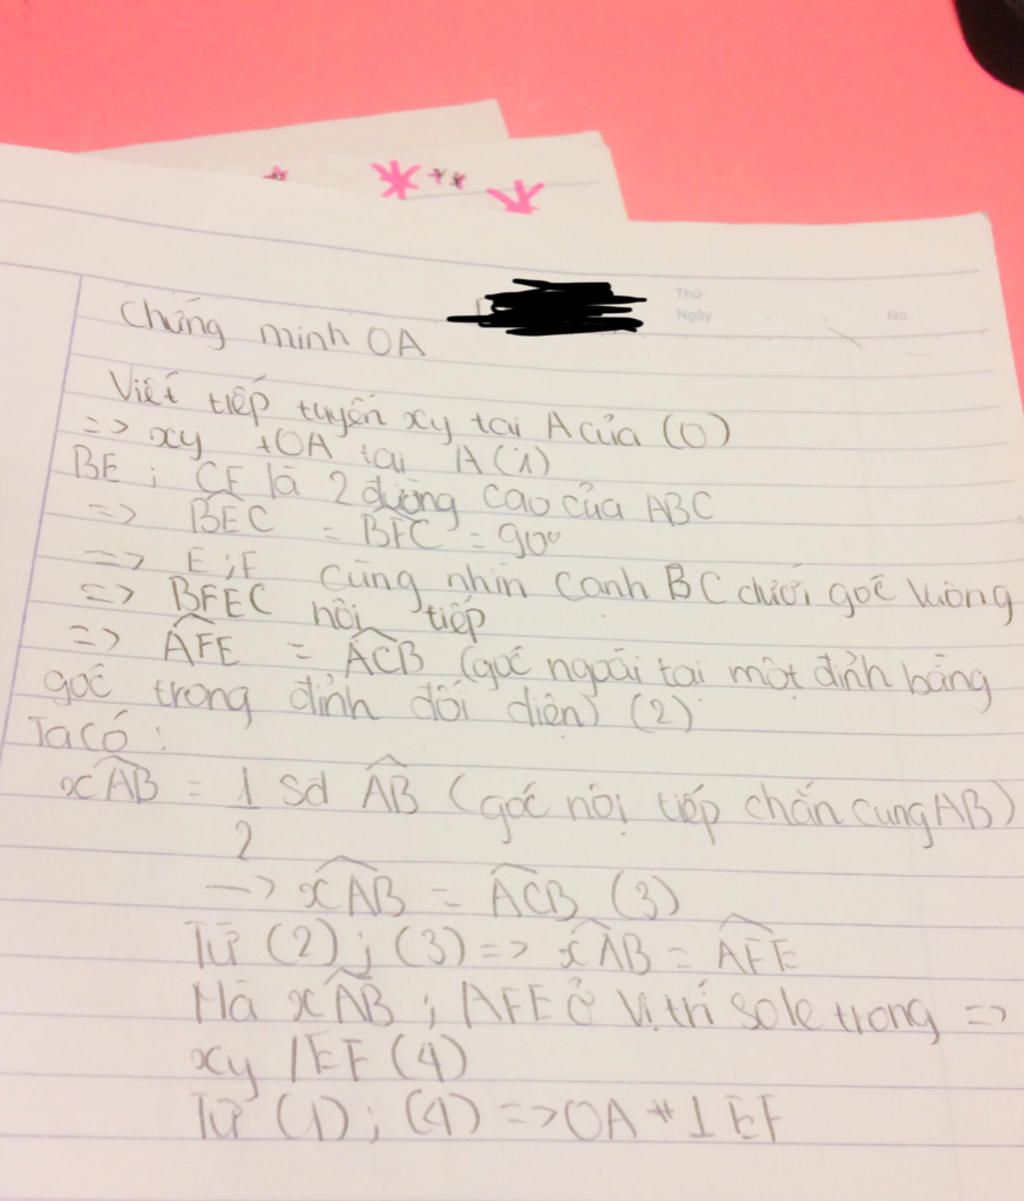 Thứ
Ngày
No.
Chứng minh OA
Viết tiếp tuyến xy tại A của (O)
=> xy ⊥OA tại A(1)
BE ; CF là 2 đường cao của ABC
=> BEC = BFC = 90°
=> E ; F cùng nhìn cạnh BC dưới góc vuông
=> BFEC nội tiếp
=> AFE = ACB (góc ngoài tại một đỉnh bằng
góc trong đỉnh đối diện) (2)
Ta có :
xAB = 1/2 Sđ AB (góc nội tiếp chắn cung AB)
-> xAB = ACB (3)
Từ (2) ; (3) => xAB = AFE
Mà xAB ; AFE ở vị trí sole trong =>
xy // EF (4)
Từ (1) ; (4) => OA ⊥ EF